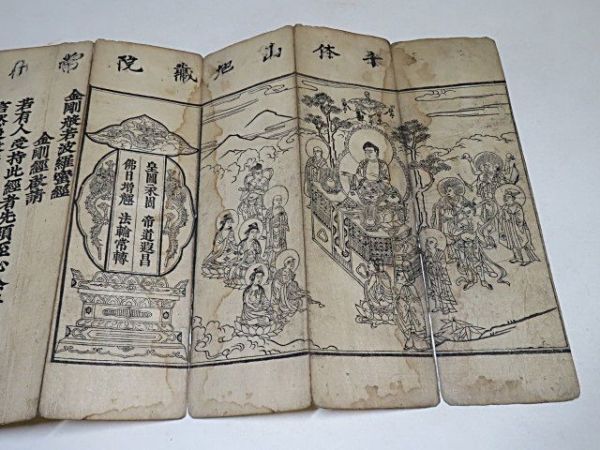 千体山地藏院常什
皇圖永固 帝道遐昌
佛日增輝 法輪常轉
金剛般若波羅蜜經
金剛經啓請
若有人受持此經者先須至心念